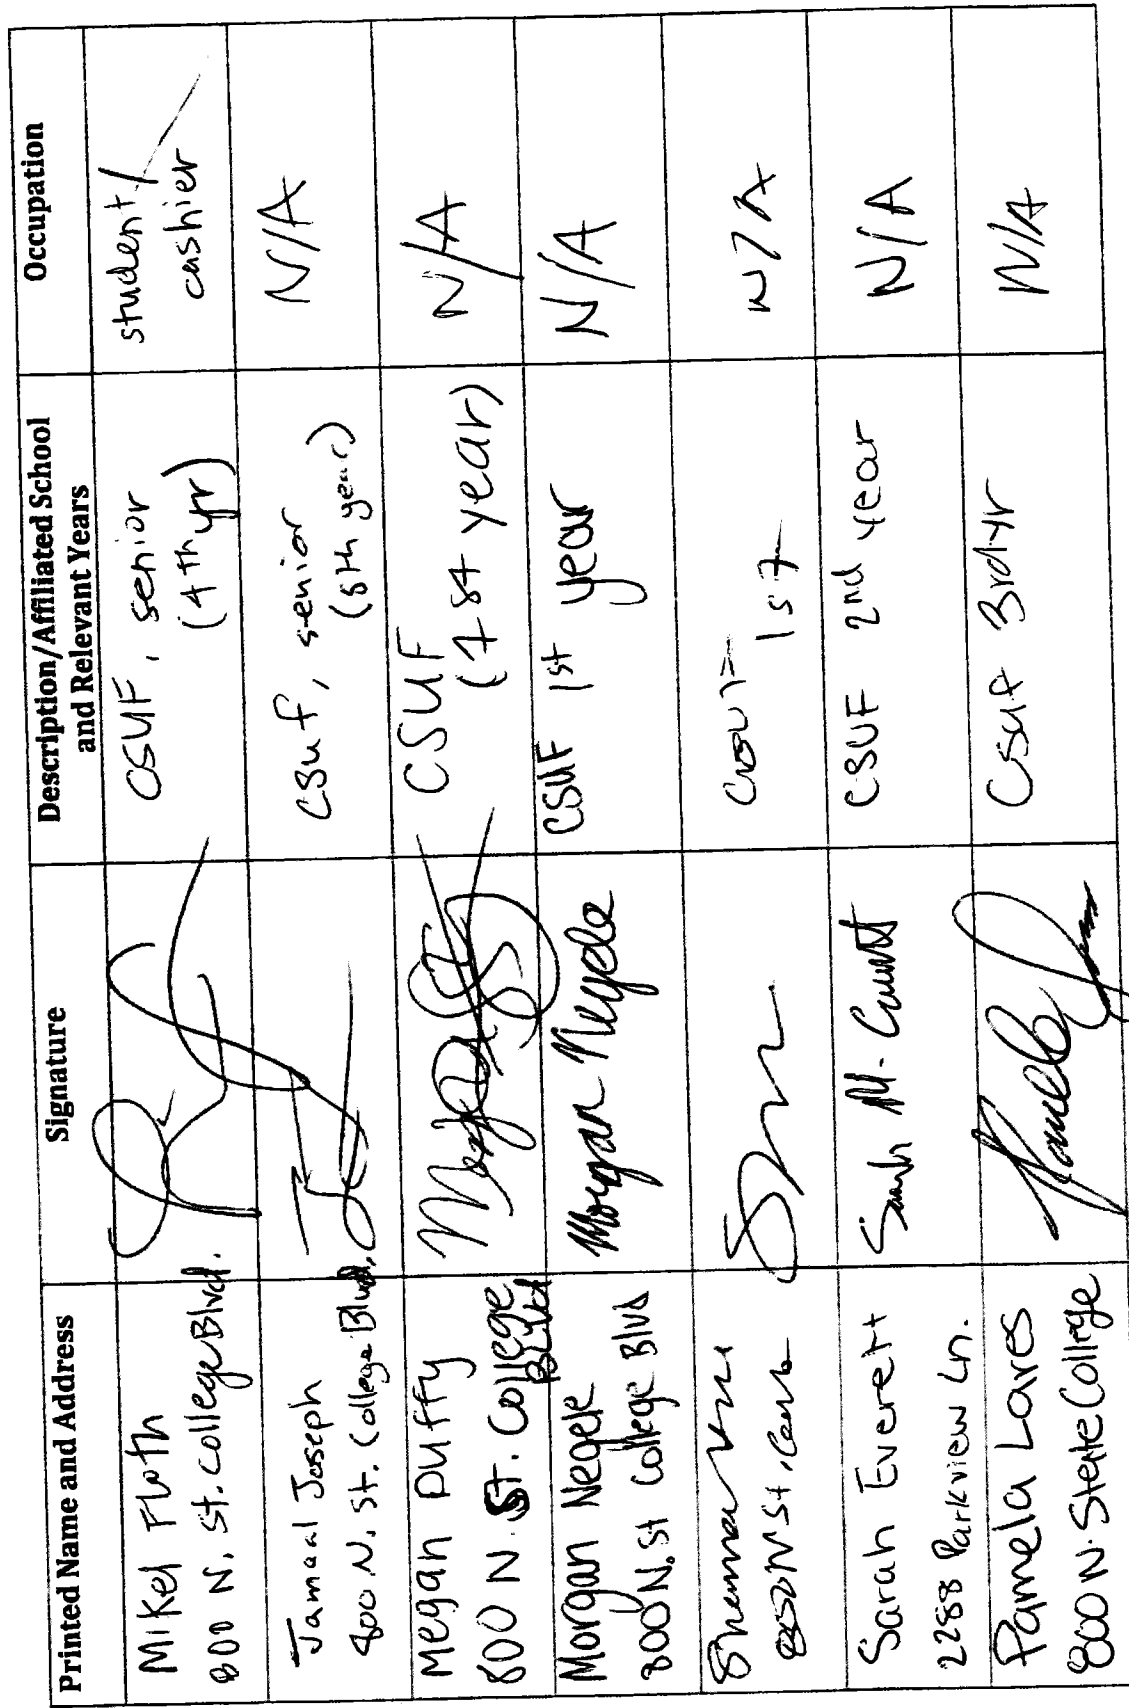 Printed Name and Address
Signature
Description/Affiliated School
and Relevant Years
Occupation
Mikel
800 N. St. College Blvd.
CSUF, senior
(4th yr)
student/
cashier
Jamaal Joseph
800 N. St. College Blvd.
CSUF, senior
N/A
Megan Duffy
800 N. St. College
Blvd
CSUF
(1st year)
N/A
Morgan Negele
800 N. St College Blvd
Morgan Negele
CSUF 1st year
N/A
N St.
1st
N/A
Sarah Everett
2288 Parkview Ln.
Sarah M.
CSUF 2nd year
N/A
Pamela Lares
800 N. State College
Pamela
CSUF 3rd yr
N/A